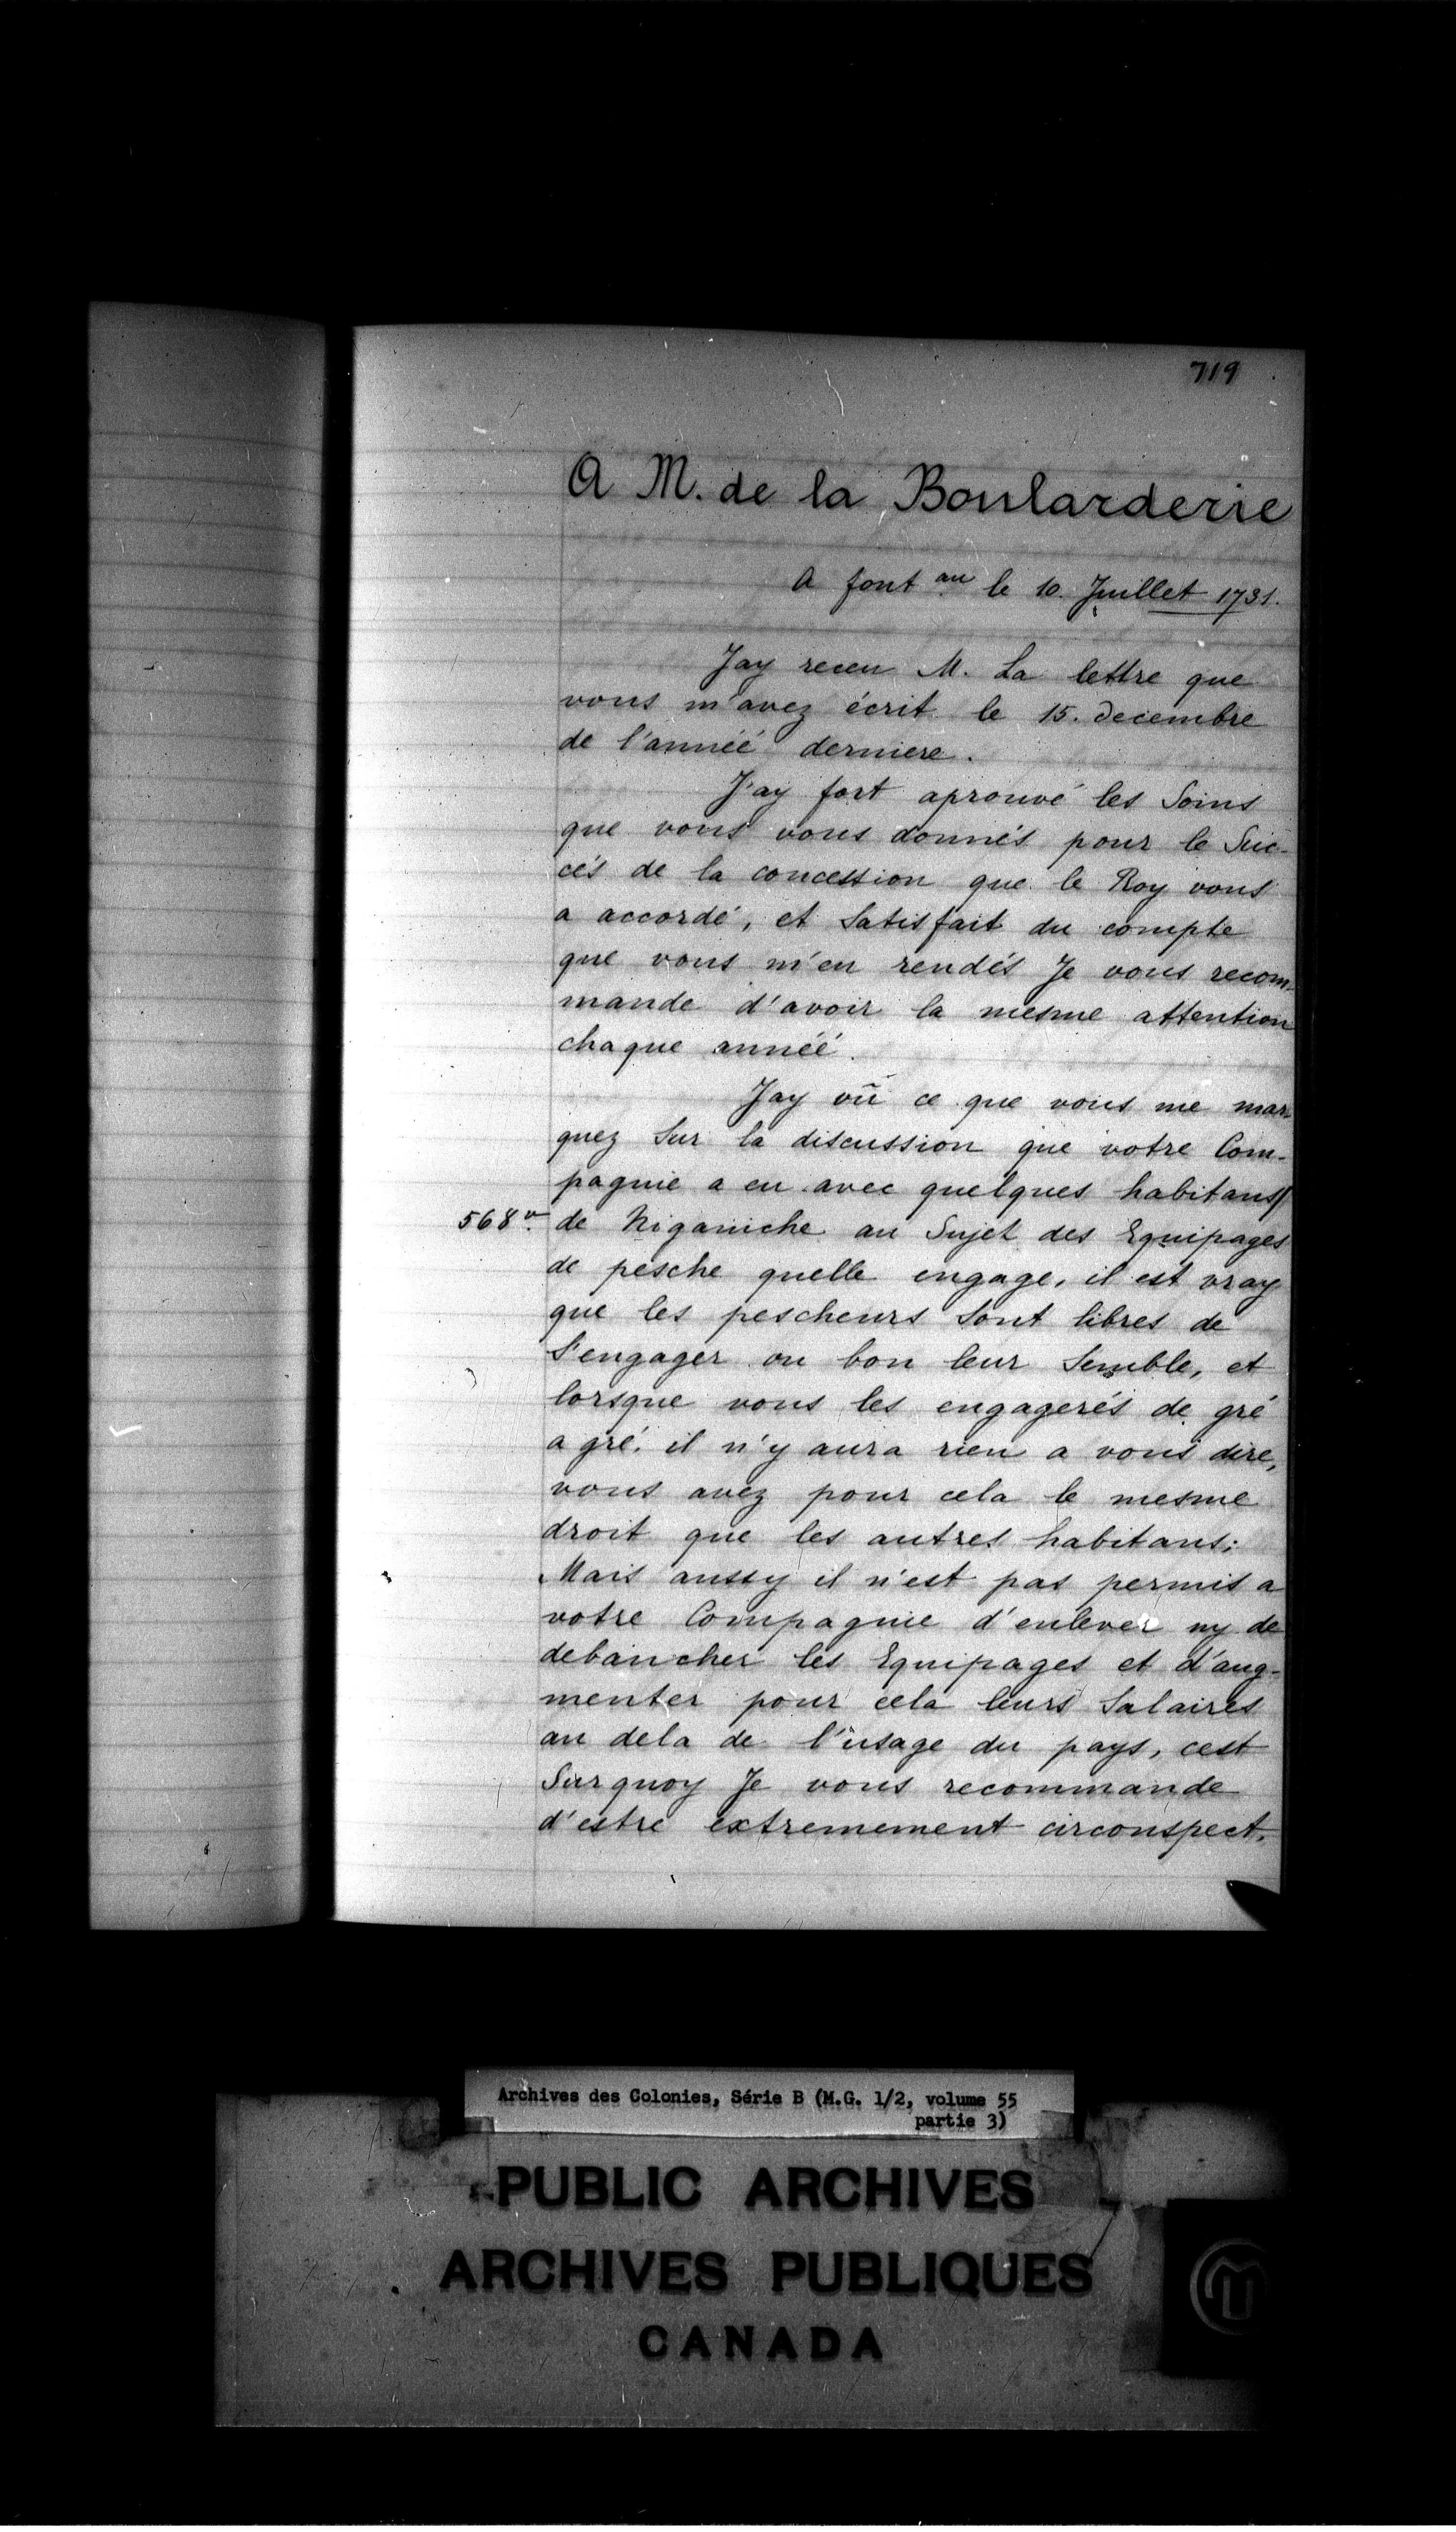 719
A M. de la Boularderie
A font au le 10. Juillet 1731.
Jay receu M. La lettre que
vous m'avez écrit le 15. decembre
de l'annéé derniere.
J'ay fort aprouvé les Soins
que vous vous donnés pour le Suc-
cés de la concession que le Roy vous
a accordé, et Satisfait du compte
que vous m'en rendés Je vous recom-
mande d'avoir la mesme attention
chaque annéé.
Jay vû ce que vous me mar-
quez Sur la discussion que votre Com-
pagnie a eu avec quelques habitans/
568 v. de Niganiche au Sujet des Equipages
de pesche quelle engage, il est vray
que les pescheurs Sont libres de
S'engager ou bon leur Semble, et
lorsque vous les engagerés de gré
a gré. il n'y aura rien a vous dire,
vous avez pour cela le mesme
droit que les autres habitans;
Mais aussy il n'est pas permis a
votre Compagnie d'enlever ny de
debaucher les Equipages et d'aug-
menter pour cela leurs Salaires
au dela de l'usage du pays, cest
Surquoy Je vous recommande
d'estre extremement circonspect.
Archives des Colonies, Série B (M.G. 1/2, volume 55
partie 3)
PUBLIC ARCHIVES
ARCHIVES PUBLIQUES
CANADA